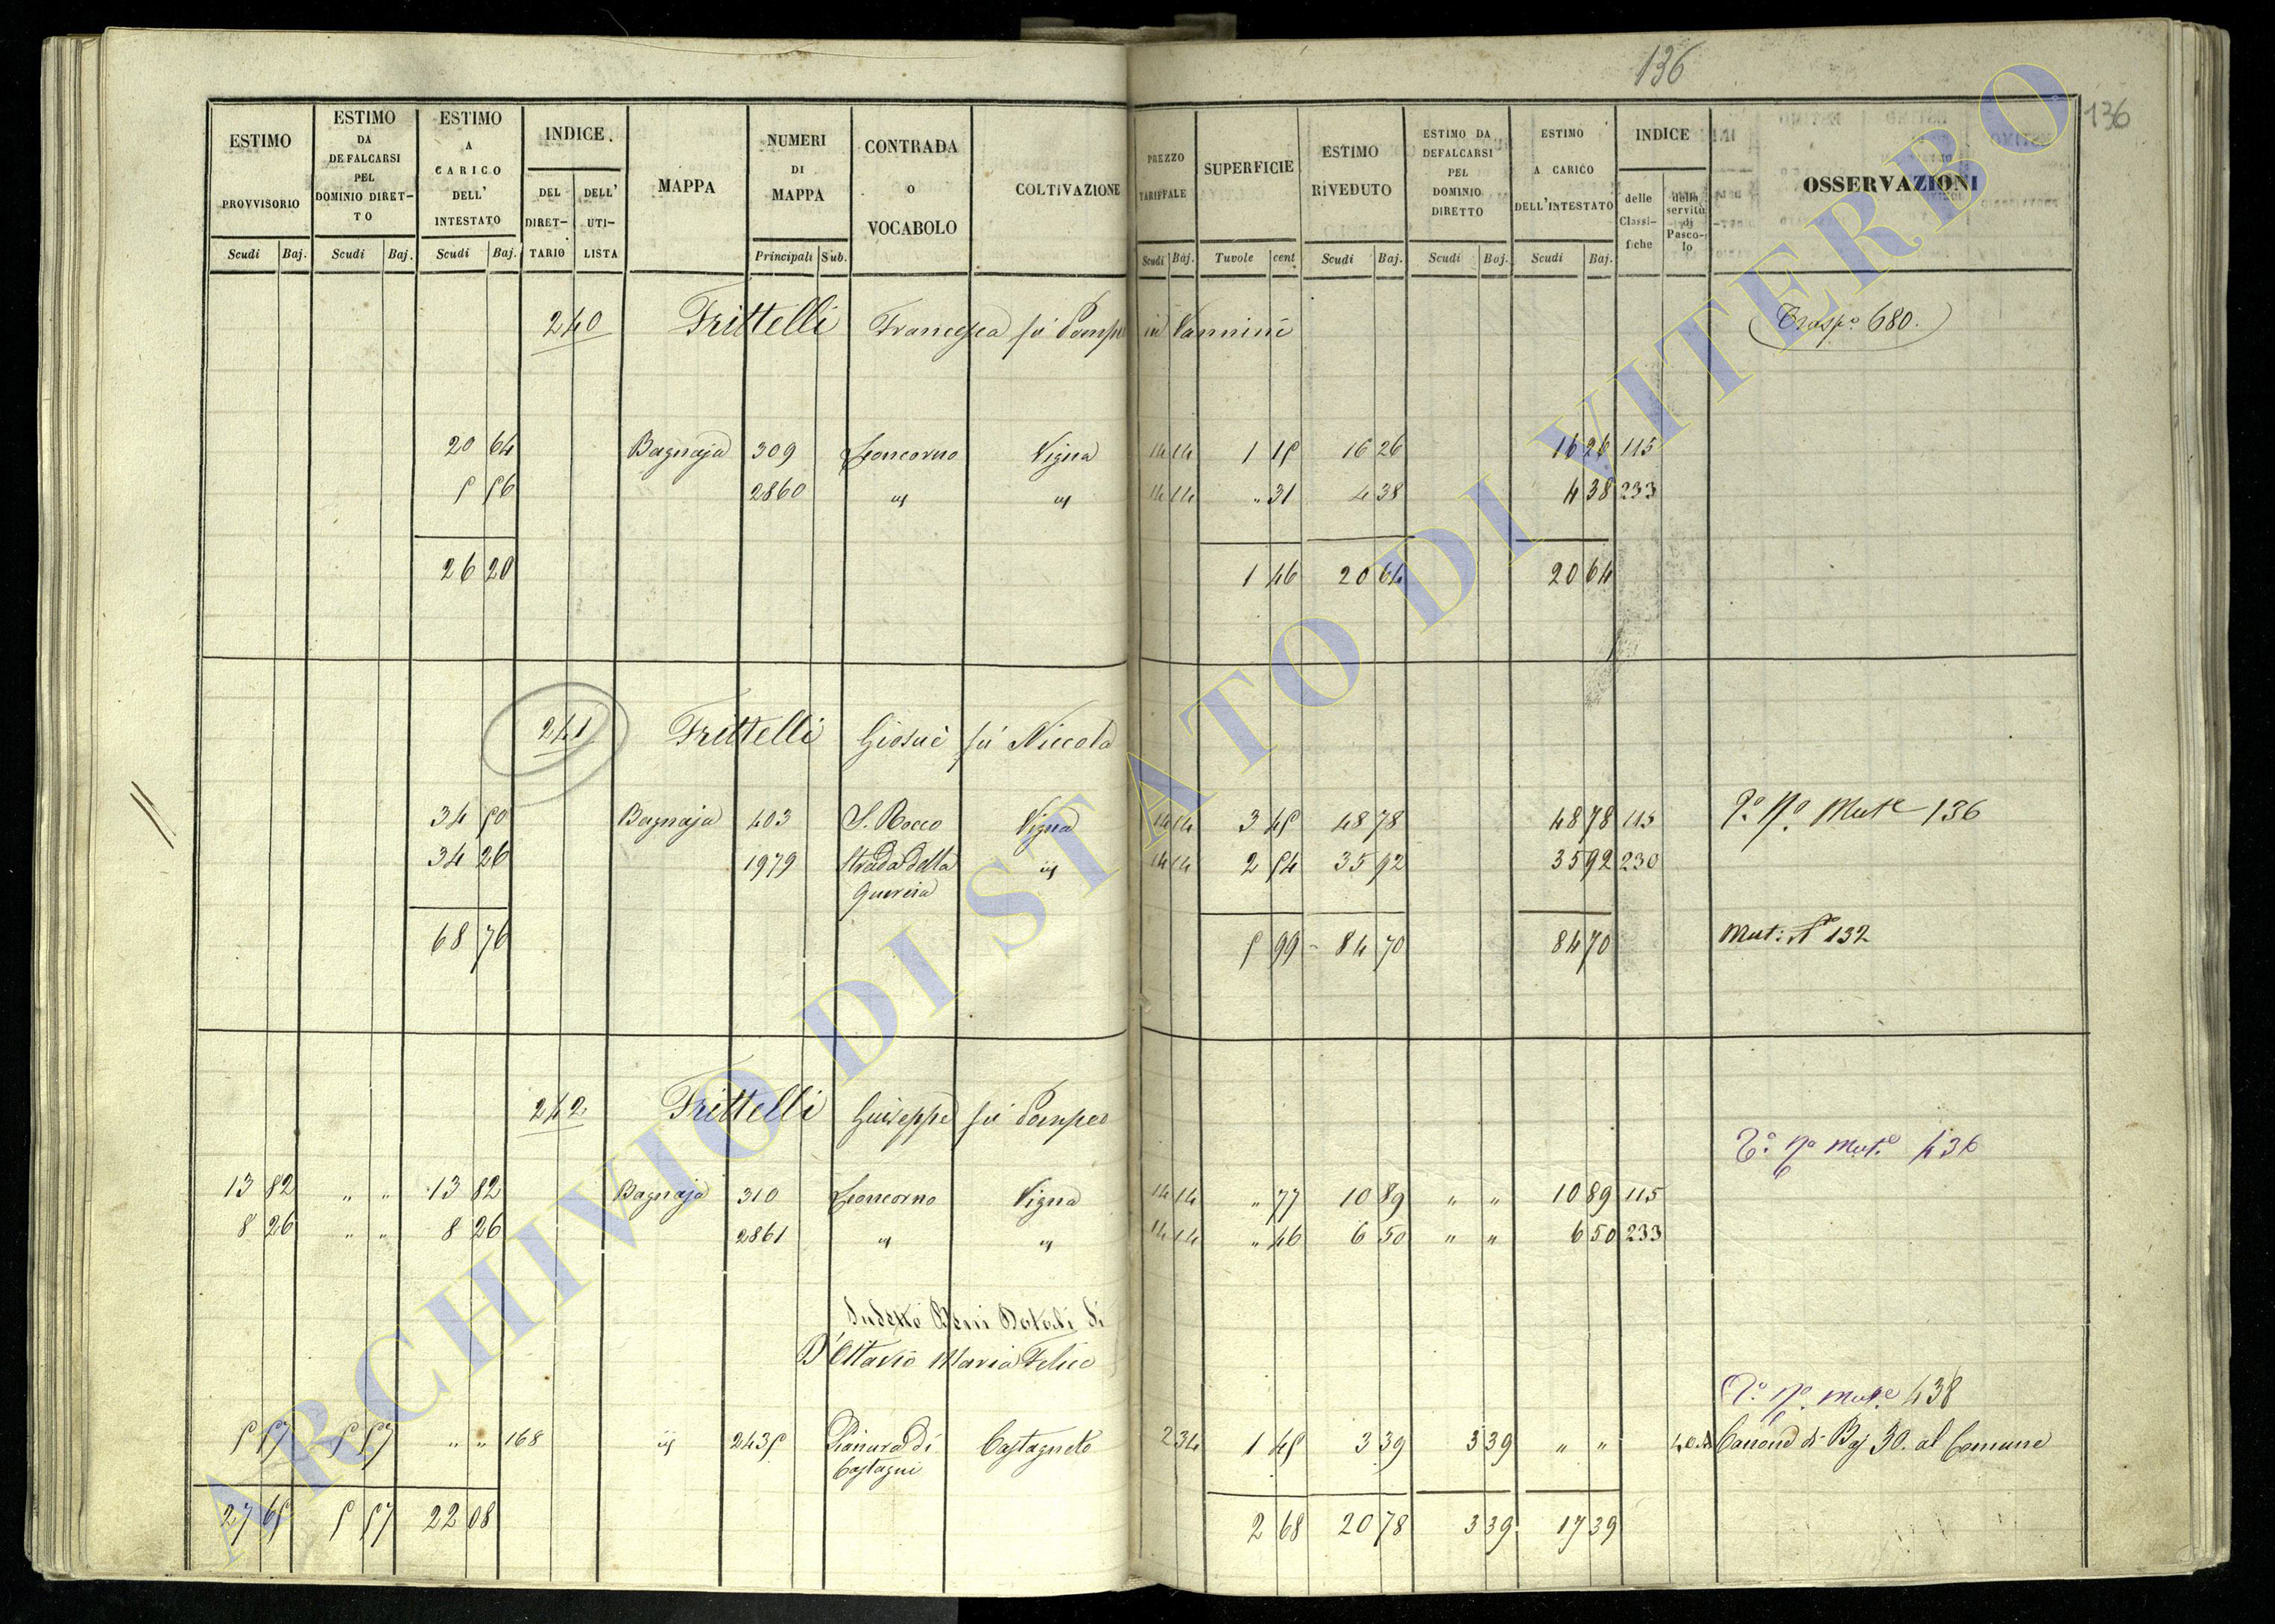 136
136
ESTIMO PROVVISORIO | ESTIMO DA DEFALCARSI PEL DOMINIO DIRET-TO | ESTIMO A CARICO DELL' INTESTATO | INDICE. | MAPPA | NUMERI DI MAPPA | CONTRADA O VOCABOLO | COLTIVAZIONE | PREZZO TARIFFALE | SUPERFICIE | ESTIMO RIVEDUTO | ESTIMO DA DEFALCARSI PEL DOMINIO DIRETTO | ESTIMO A CARICO DELL'INTESTATO | INDICE | OSSERVAZIONI
DEL DIRET-TARIO | DELL' UTI-LISTA | delle Classi-fiche | della servitù di Pasco-lo
Scudi | Baj. | Scudi | Baj. | Scudi | Baj. | Principali | Sub. | Scudi | Baj. | Tavole | cent | Scudi | Baj. | Scudi | Baj. | Scudi | Baj.
240 Frittelli Francesca fu Pompeo in Vannini (Trasp.o 680.)
20 64 Bagnaja 309 Leoncorno Vigna 14 14 1 15 16 26 16 26 115
5 56 2860 " " 14 14 " 31 4 38 4 38 233
26 20 1 46 20 64 20 64
241 Frittelli Giosuè fu Niccola
34 50 Bagnaja 403 S. Rocco Vigna 14 14 3 45 48 78 48 78 115 T.o N.o Mut.e 136
34 26 1979 Strada della Quercia " 14 14 2 54 35 92 35 92 230
68 76 5 99 84 70 84 70 Mut: N.o 132
242 Frittelli Giuseppe fu Pompeo
T.o N.o Mut.e 436
13 82 " " 13 82 Bagnaja 310 Leoncorno Vigna 14 14 " 77 10 89 " " 10 89 115
8 26 " " 8 26 2861 " " 14 14 " 46 6 50 " " 6 50 233
Sudetto Beni Dotali di
D'Ottavio Maria Felice
T.o N.o Mut.e 438
5 57 5 57 " " 168 " 2435 Pianura di Castagni Castagneto 2 34 1 45 3 39 3 39 " " Canone di Baj 30. al Comune
27 65 5 57 22 08 2 68 20 78 3 39 17 39
ARCHIVIO DI STATO DI VITERBO